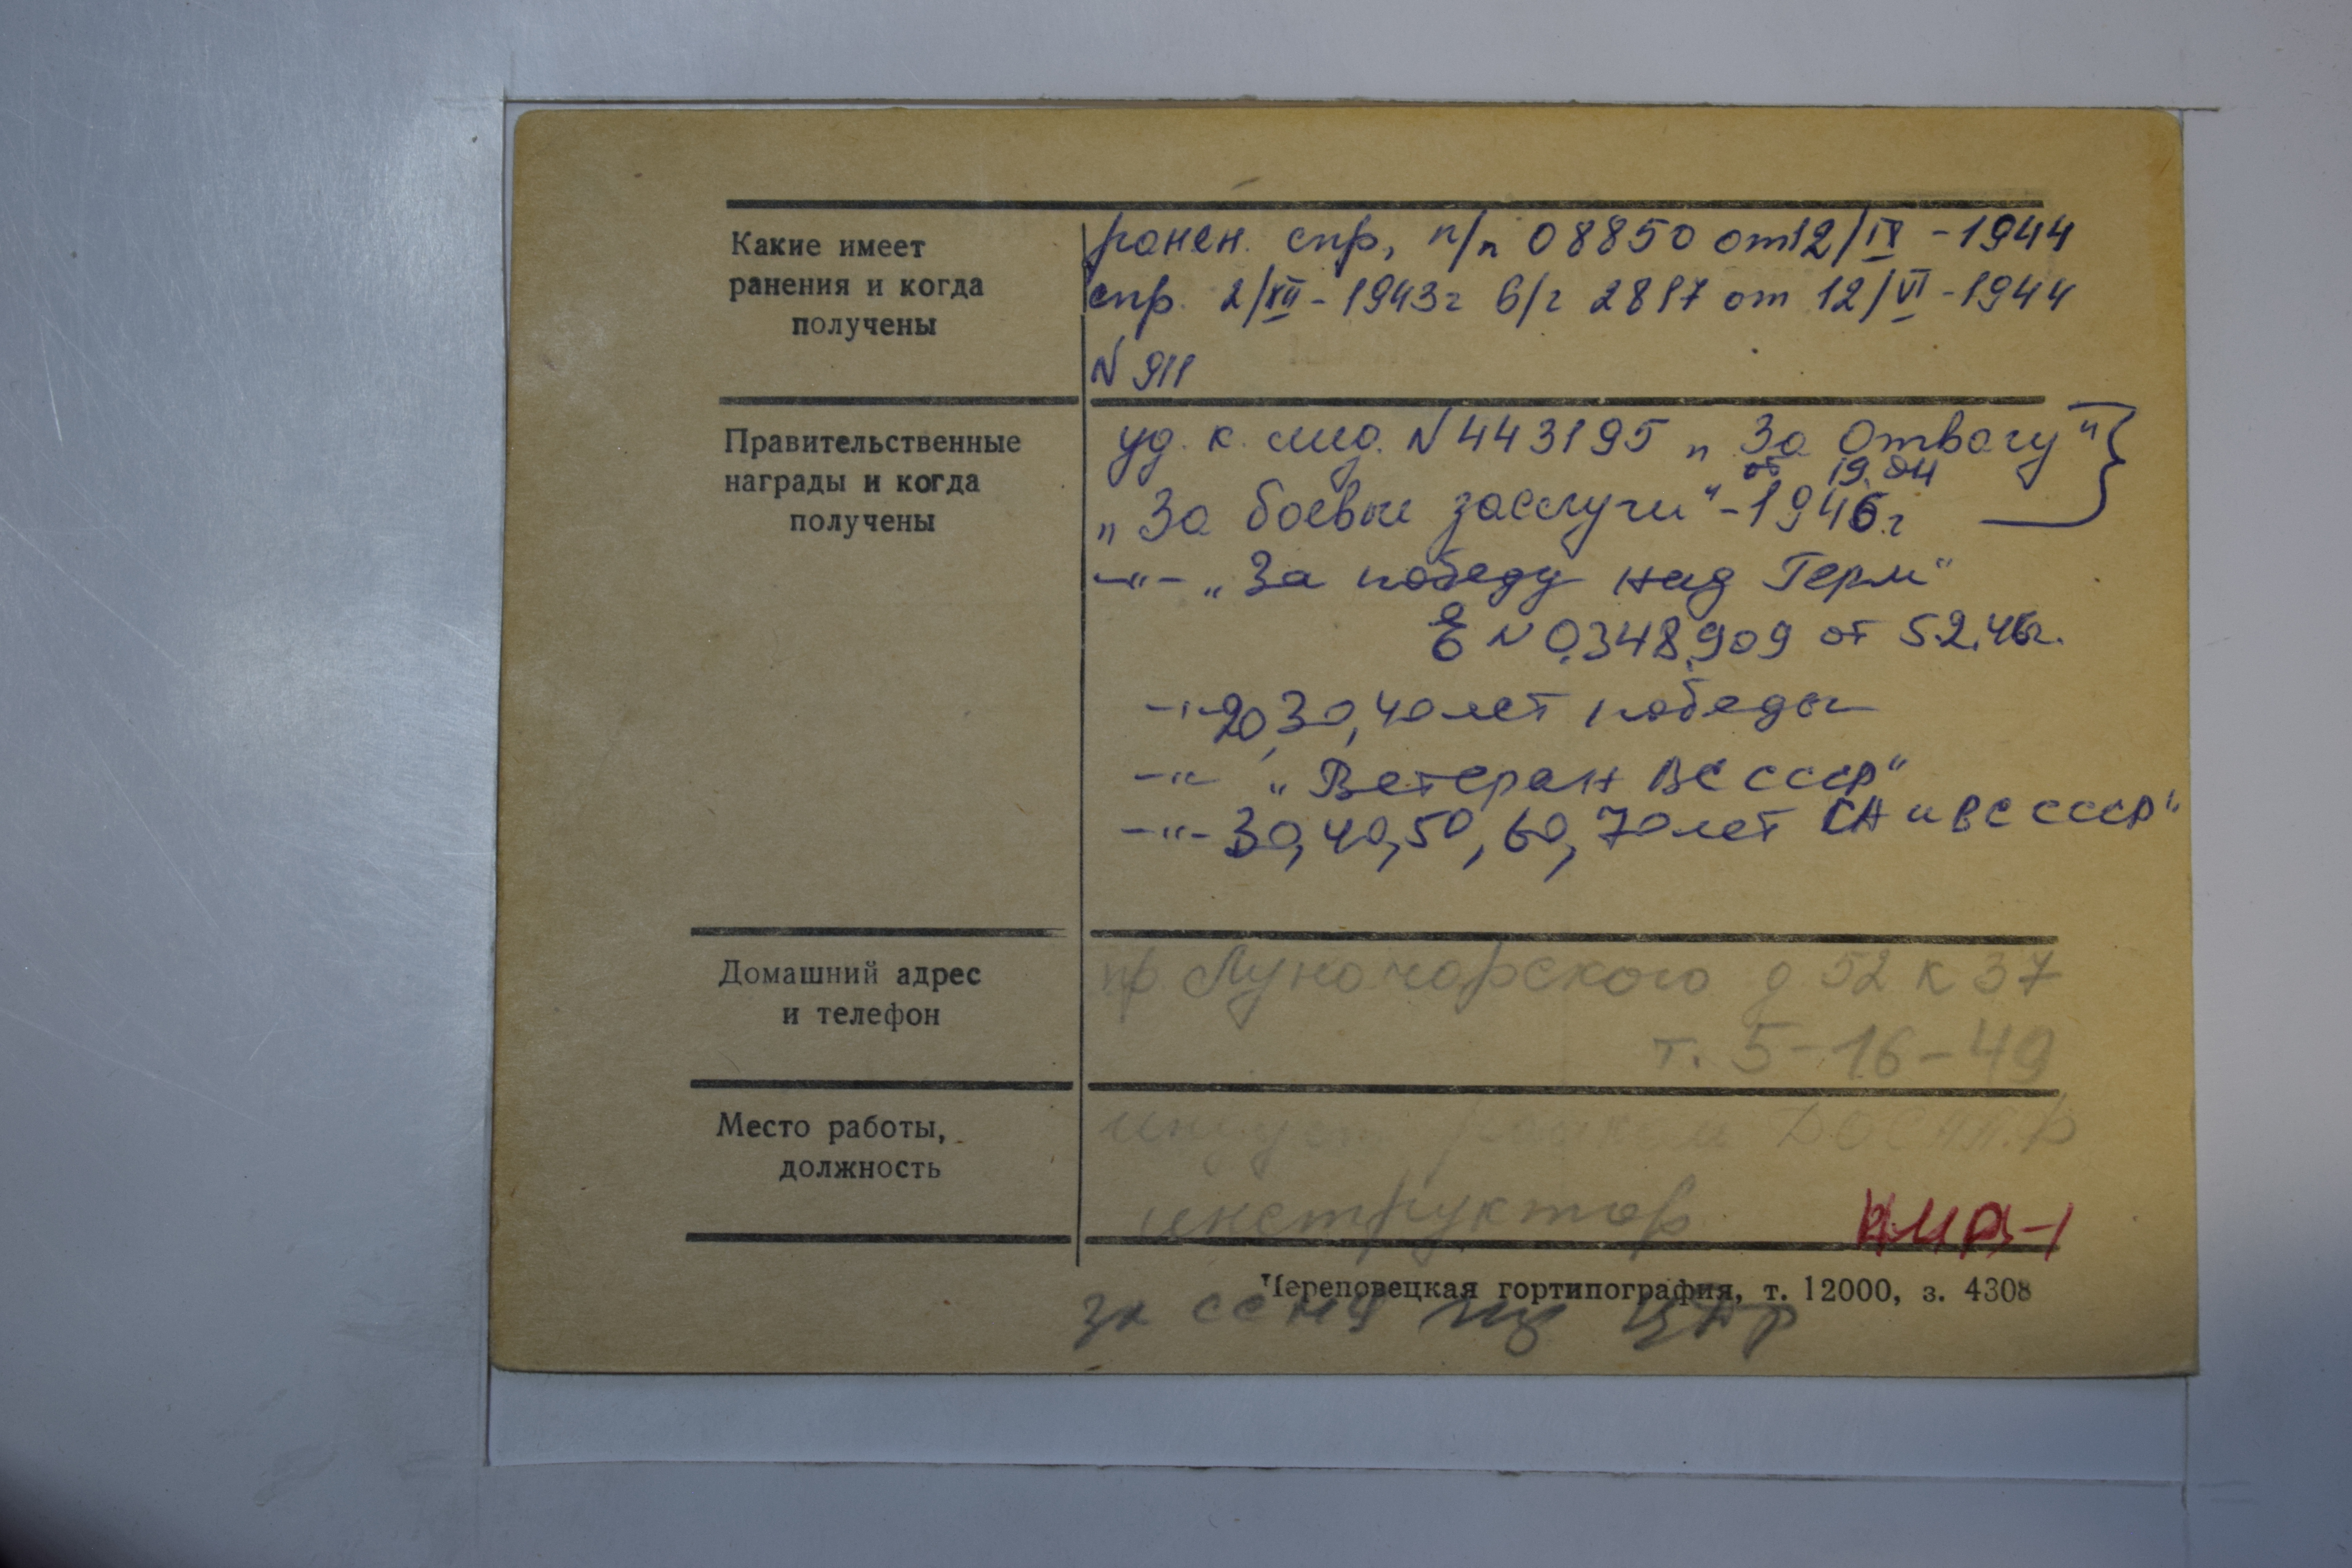 Какие имеет
ранения и когда
получены
ранен. спр, п/п 08850 от 12/IX - 1944
спр. 2/XII - 1943г б/г 2817 от 12/VI - 1944
N 911
Правительственные
награды и когда
получены
уд. к. мед. N 443195 „За Отвагу"
от 19.04
„За боевые заслуги" - 1946г
-"- „За победу над Герм"
Е N 0.348.909 от 5.2.46г.
-"- 20, 30, 40 лет победы
-"- „Ветеран ВС СССР"
-"- 30, 40, 50, 60, 70 лет СА и ВС СССР"
Домашний адрес
и телефон
пр. Луначарского д 52 к 37
т. 5-16-49
Место работы,
должность
индуст. райком ДОСААФ
инструктор
Череповецкая гортипография, т. 12000, з. 4308